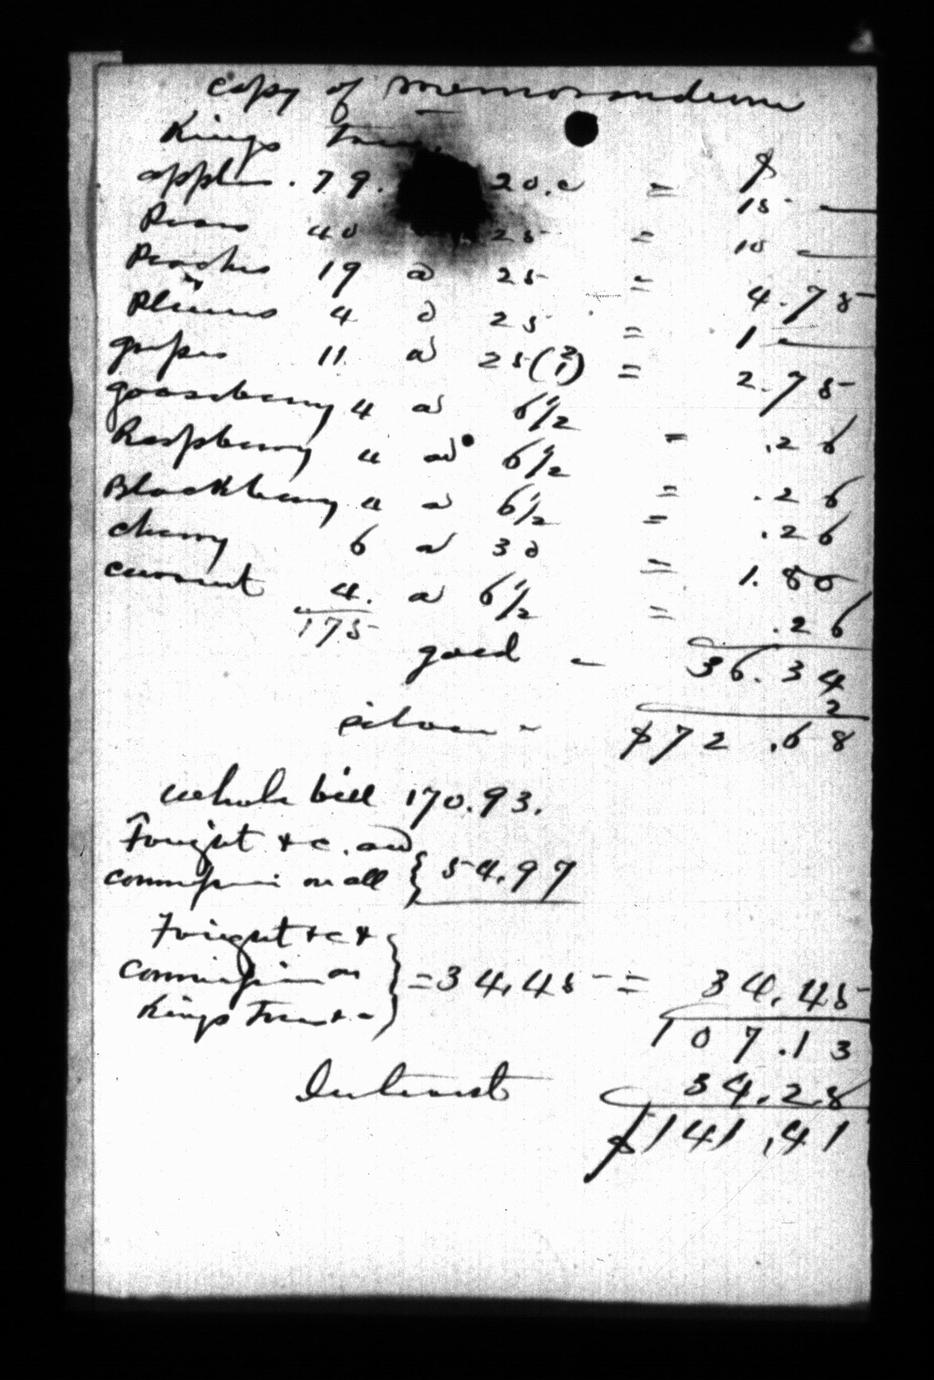 copy of memorandum
Kings Trees
$
apples . 79. 20.c = 15 —
Pears 40 25 = 10 —
Peaches 19 @ 25 = 4.75
Plums 4 @ 25 = 1 —
grapes 11 @ 25 (2/1) = 2.75
gooseberry 4 @ 6 1/2 = .26
Raspberry 4 @ 6 1/2 = .26
Blackberry 4 @ 6 1/2 = .26
cherry 6 @ 30 = 1.80
currant 4. @ 6 1/2 = .26
175
good — 36.34
2
$72.68
whole bill 170.93.
Freight &c. and
commission on all } 54.97
Freight &c &
commission on } = 34.45 = 34.45
Kings Trees &c
107.13
Interest 34.28
$141.41